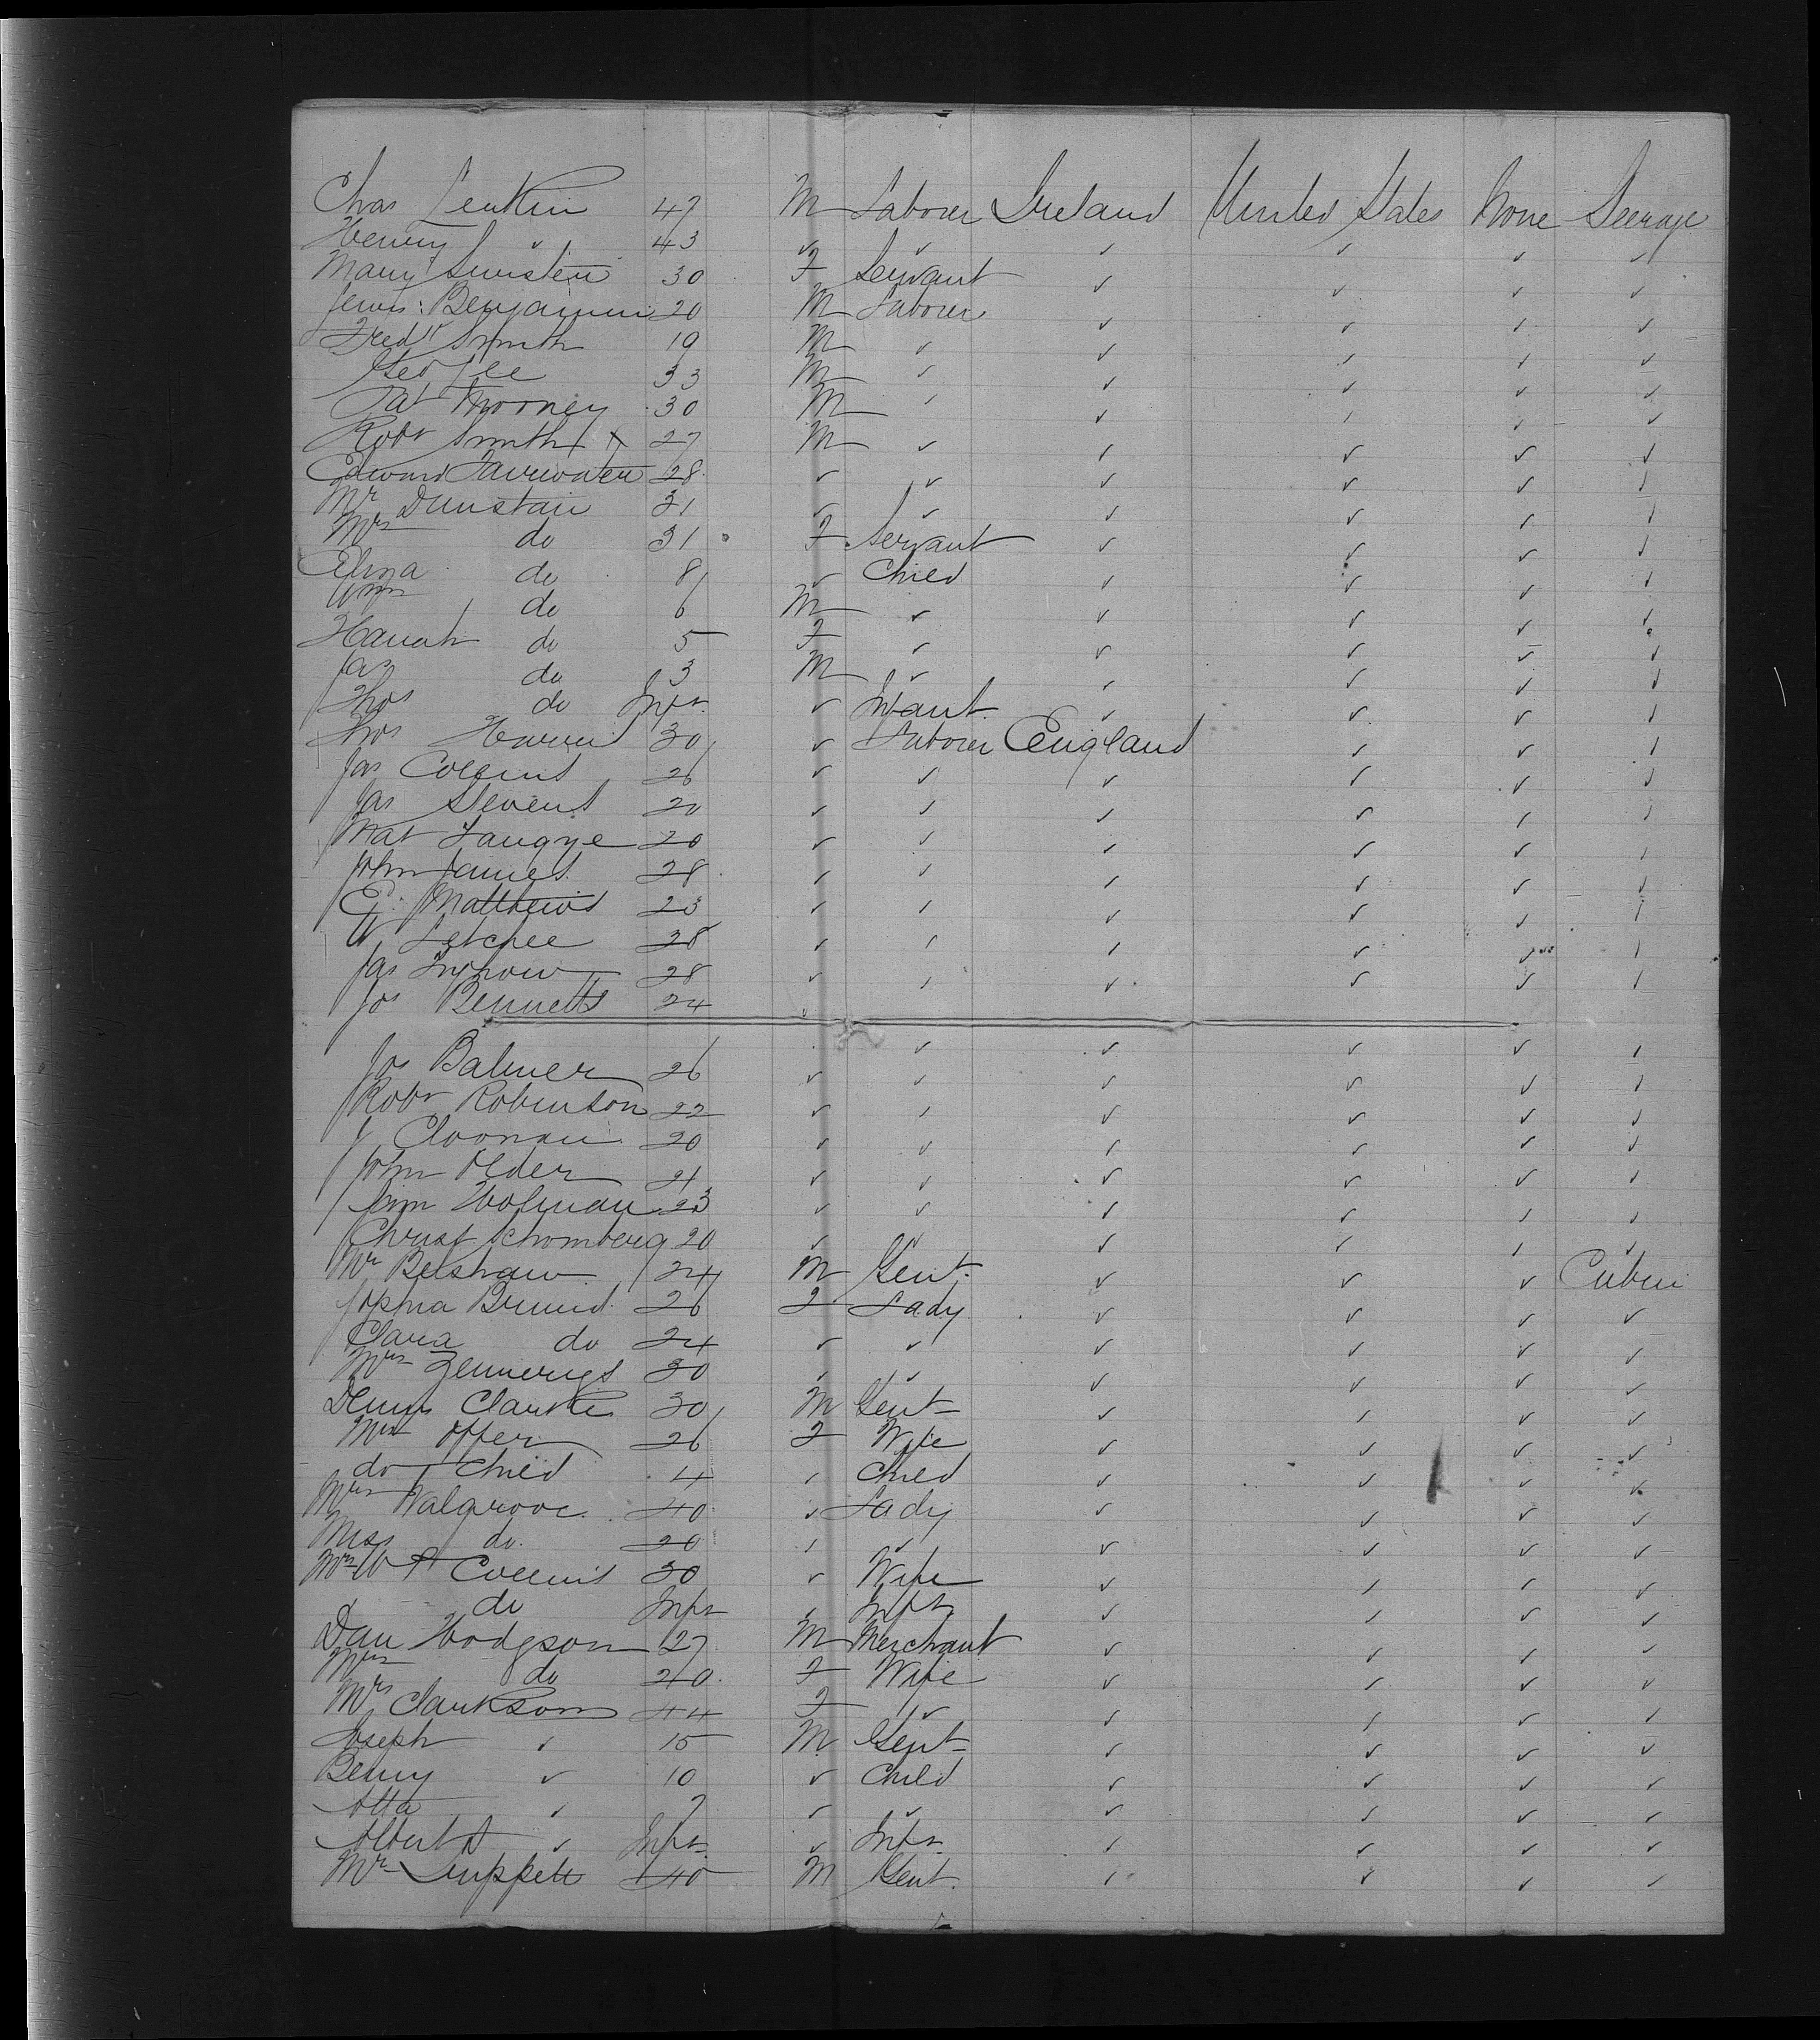 Chas Lenkin 47 M Laborer Ireland United States None Steerage
Henry " 43 ✓ ✓ ✓ ✓ ✓ ✓
Mary 30 F Servant ✓ ✓ ✓ ✓
Benjamin 20 M Laborer ✓ ✓ ✓ ✓
Fredk Smith 19 M ✓ ✓ ✓ ✓ ✓
Geo Lee 33 M ✓ ✓ ✓ ✓ ✓
Pat Mooney 30 M ✓ ✓ ✓ ✓ ✓
Robt Smith x 27 M ✓ ✓ ✓ ✓ ✓
Edward 28 ✓ ✓ ✓ ✓ ✓ ✓
Mr Dunstan 31 ✓ ✓ ✓ ✓ ✓ ✓
Mrs do 31 F Servant ✓ ✓ ✓ ✓
Eliza do 8 ✓ Child ✓ ✓ ✓ ✓
Wm do 6 M ✓ ✓ ✓ ✓ ✓
Hanah do 5 F ✓ ✓ ✓ ✓ ✓
Jas do 3 M ✓ ✓ ✓ ✓ ✓
Thos do Inft ✓ Infant ✓ ✓ ✓ ✓
Thos Harris 30 ✓ Laborer England ✓ ✓ ✓
Jas Collins 26 ✓ ✓ ✓ ✓ ✓ ✓
Jas Stevens 20 ✓ ✓ ✓ ✓ ✓ ✓
Mat Tangye 20 ✓ ✓ ✓ ✓ ✓ ✓
John James 28 ✓ ✓ ✓ ✓ ✓ ✓
E. Matthews 23 ✓ ✓ ✓ ✓ ✓ ✓
W Letchee 28 ✓ ✓ ✓ ✓ ✓ ✓
Jas 28 ✓ ✓ ✓ ✓ ✓ ✓
Jos Bennetts 24 ✓
Jos Balmer 26 ✓ ✓ ✓ ✓ ✓ ✓
Robt Robinson 22 ✓ ✓ ✓ ✓ ✓ ✓
J Cloonan 20 ✓ ✓ ✓ ✓ ✓ ✓
John Older 21 ✓ ✓ ✓ ✓ ✓ ✓
Jim Holman 23 ✓ ✓ ✓ ✓ ✓ ✓
Christ Schomberg 20 ✓ ✓ ✓ ✓ ✓ ✓
Mr Belshaw 24 M Gent. ✓ ✓ ✓ Cabin
Sophia 26 F Lady ✓ ✓ ✓ ✓
Clara do 24 ✓ ✓ ✓ ✓ ✓ ✓
Mrs 30 ✓ ✓ ✓ ✓ ✓ ✓
Denys Clarke 30 M Gent ✓ ✓ ✓ ✓
Mrs Offer 26 F Wife ✓ ✓ ✓ ✓
do Child 4 ✓ Child ✓ ✓ ✓ ✓
Mrs Walgrove 40 ✓ Lady ✓ ✓ ✓ ✓
Miss do 20 ✓ ✓ ✓ ✓ ✓ ✓
Mrs W A Collins 30 ✓ Wife ✓ ✓ ✓ ✓
do Inft ✓ Inft ✓ ✓ ✓ ✓
Dan Hodgson 27 M Merchant ✓ ✓ ✓ ✓
Mrs do 20 F Wife ✓ ✓ ✓ ✓
Mrs Clarkson 44 F ✓ ✓ ✓ ✓ ✓
Joseph ✓ 15 M Gent ✓ ✓ ✓ ✓
Benny ✓ 10 ✓ Child ✓ ✓ ✓ ✓
Otta ✓ 7 ✓ ✓ ✓ ✓ ✓ ✓
Albert A ✓ Inft ✓ Inft ✓ ✓ ✓ ✓
Mr 40 M Gent. ✓ ✓ ✓ ✓